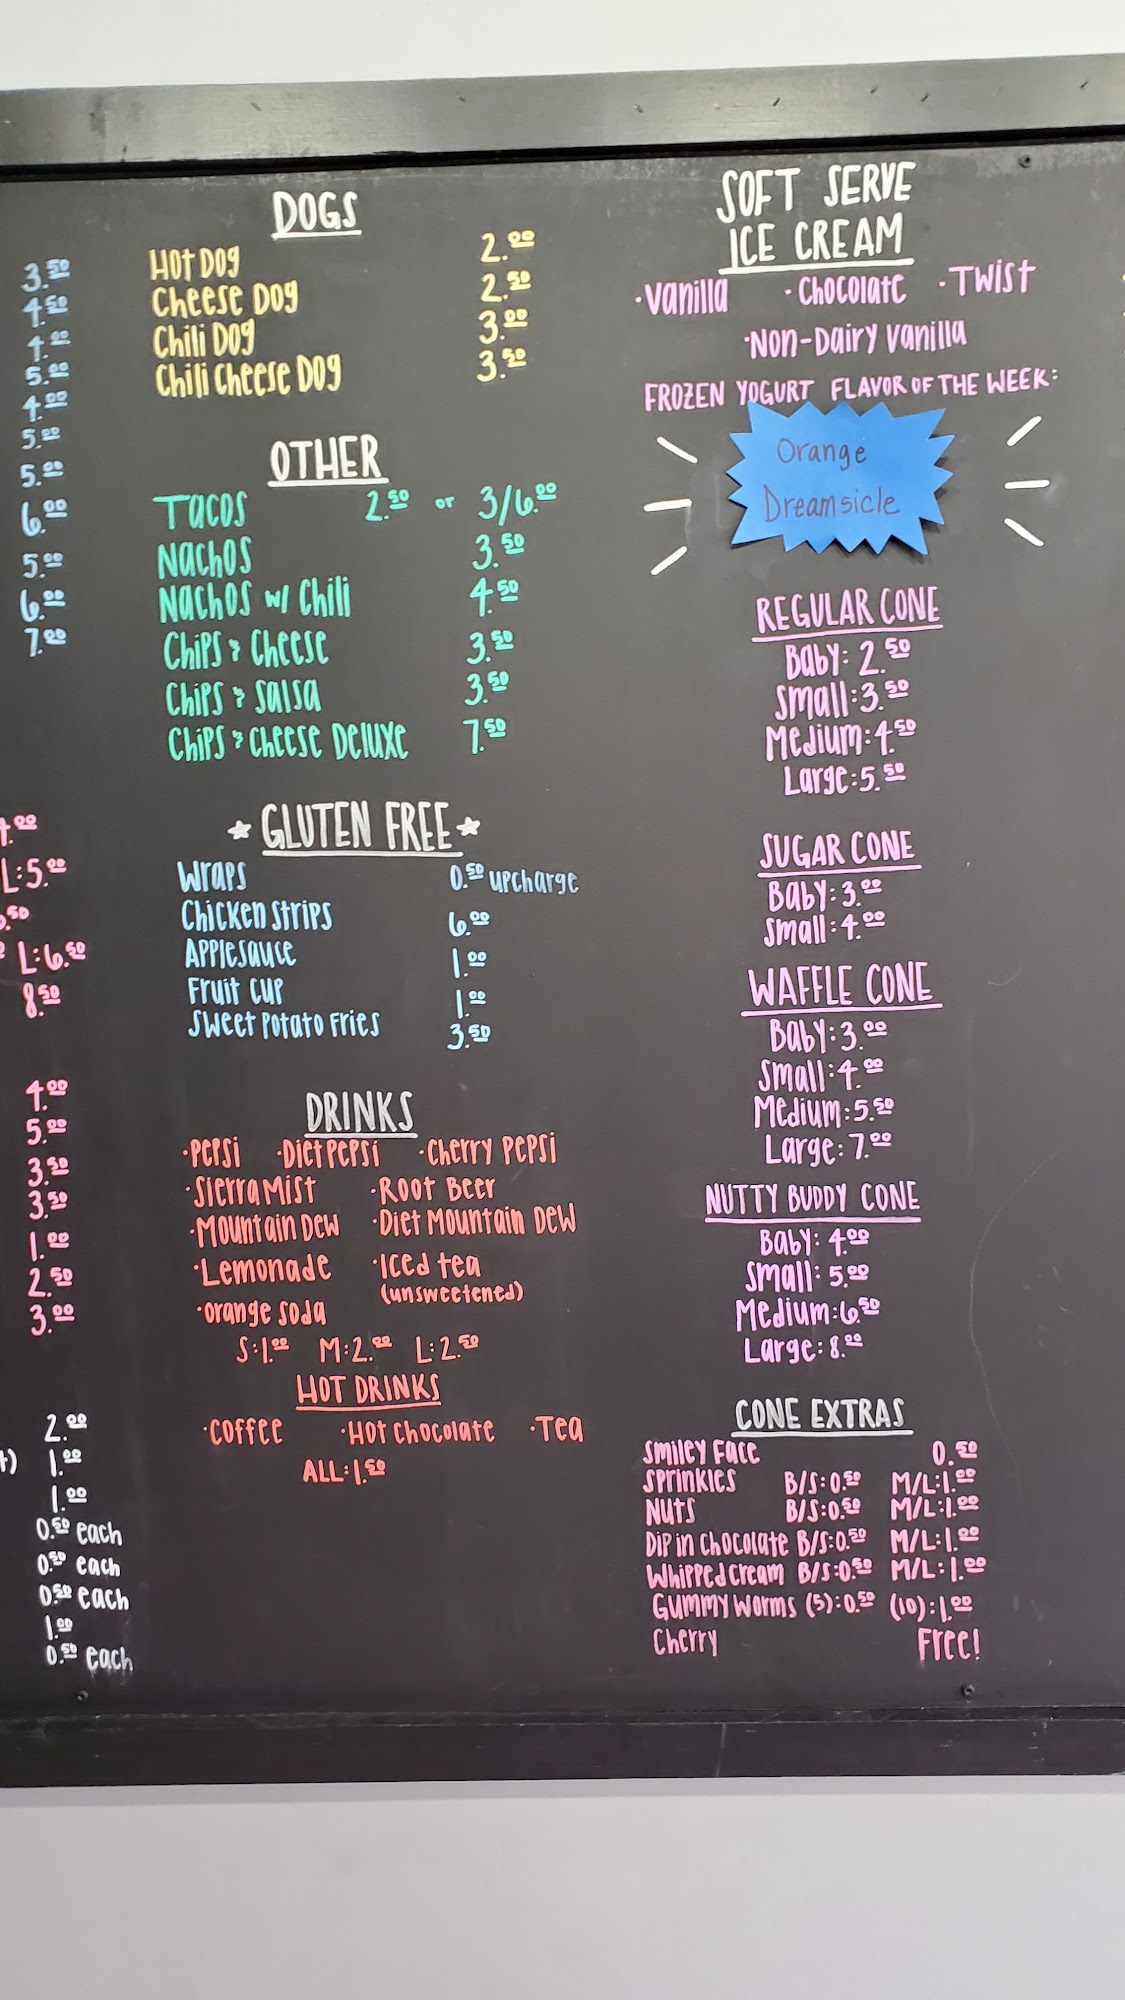 3.50
4.50
4.00
5.00
4.00
5.00
5.00
6.00
5.00
6.00
7.00
L:5.00
L:6.50
8.50
4.00
5.00
3.50
3.50
1.00
2.50
3.00
2.00
1.00
1.00
0.50 each
0.50 each
0.50 each
1.00
0.50 each
DOGS
Hot Dog 2.00
Cheese Dog 2.50
Chili Dog 3.00
Chili Cheese Dog 3.50
OTHER
Tacos 2.50 or 3/6.00
Nachos 3.50
Nachos w/ Chili 4.50
Chips & Cheese 3.50
Chips & Salsa 3.50
Chips & Cheese Deluxe 7.50
GLUTEN FREE
Wraps 0.50 upcharge
Chicken Strips 6.00
Applesauce 1.00
Fruit Cup 1.00
Sweet Potato Fries 3.50
DRINKS
·Pepsi ·Diet Pepsi ·Cherry Pepsi
·Sierra Mist ·Root Beer
·Mountain Dew ·Diet Mountain Dew
·Lemonade ·Iced tea
(unsweetened)
·Orange Soda
S:1.00 M:2.00 L:2.50
HOT DRINKS
·Coffee ·Hot Chocolate ·Tea
ALL:1.50
SOFT SERVE
ICE CREAM
·Vanilla ·Chocolate ·Twist
·Non-Dairy Vanilla
FROZEN YOGURT FLAVOR OF THE WEEK:
Orange
Dreamsicle
REGULAR CONE
Baby: 2.50
Small:3.50
Medium:4.50
Large:5.50
SUGAR CONE
Baby:3.00
Small:4.00
WAFFLE CONE
Baby:3.00
Small:4.00
Medium:5.50
Large:7.00
NUTTY BUDDY CONE
Baby: 4.00
Small: 5.00
Medium:6.50
Large:8.00
CONE EXTRAS
Smiley Face 0.50
Sprinkles B/S:0.50 M/L:1.00
Nuts B/S:0.50 M/L:1.00
Dip in Chocolate B/S:0.50 M/L:1.00
Whipped Cream B/S:0.50 M/L:1.00
Gummy Worms (5):0.50 (10):1.00
Cherry Free!